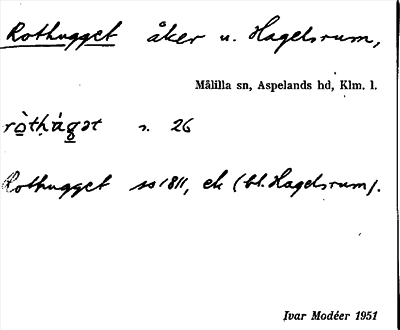 Rothugget åker u. Hagelsrum,
Målilla sn, Aspelands hd, Klm. l.
ròtḥágət s. 26
Rothugget ss 1811, ek (bl. Hagelsrum).
Ivar Modéer 1951